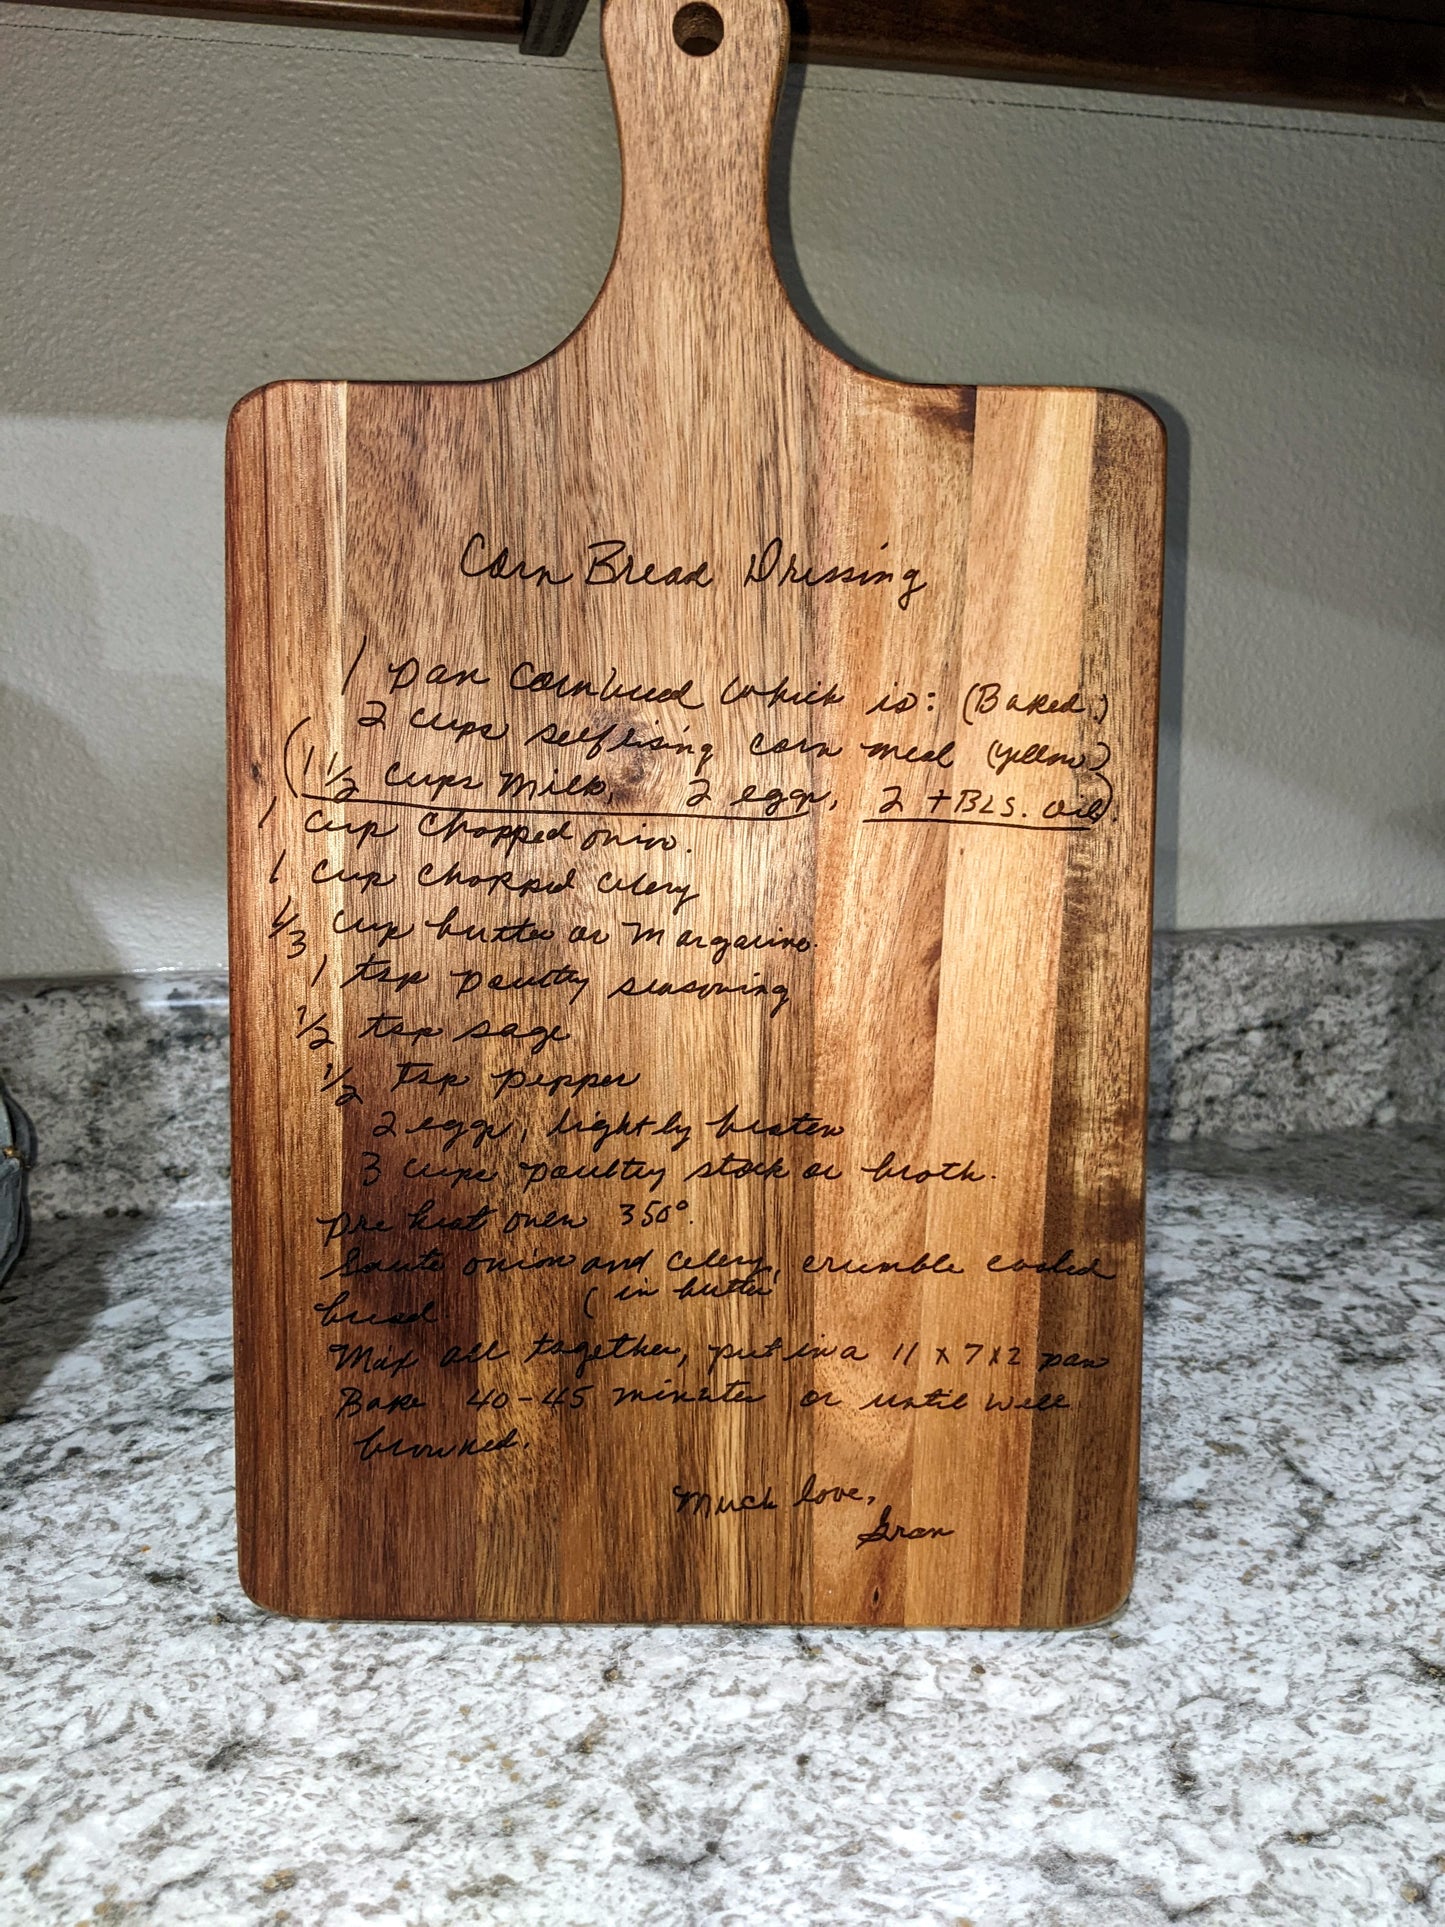 Corn Bread Dressing
1 pan cornbread which is: (Baked.)
2 cups selfrising corn meal (yellow)
(1 1/2 cups milk, 2 eggs, 2 TBLS. oil).
1 cup chopped onion.
1 cup chopped celery
1/3 cup butter or margarine.
1 tsp poultry seasoning
1/2 tsp sage
1/2 tsp pepper
2 eggs, lightly beaten
3 cups poultry stock or broth.
Pre heat oven 350°.
Saute onion and celery, crumble cooked
( in butter
bread
Mix all together, put in a 11 x 7 x 2 pan
Bake 40-45 minutes or until well
browned.
Much love,
Gran